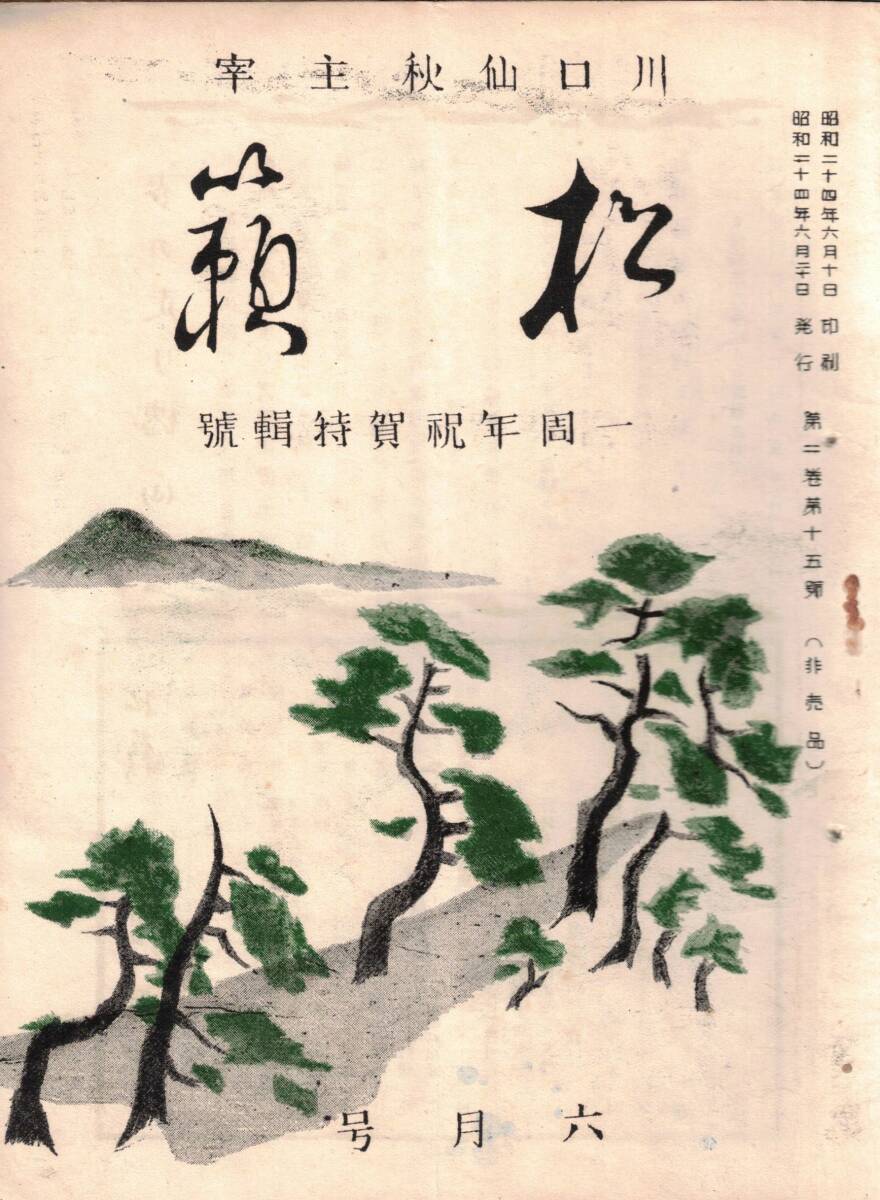 川口仙秋主宰
松籟
一周年祝賀特輯號
昭和二十四年六月十日 印刷
昭和二十四年六月二十日 発行
第二巻第十五號 （非売品）
六月号